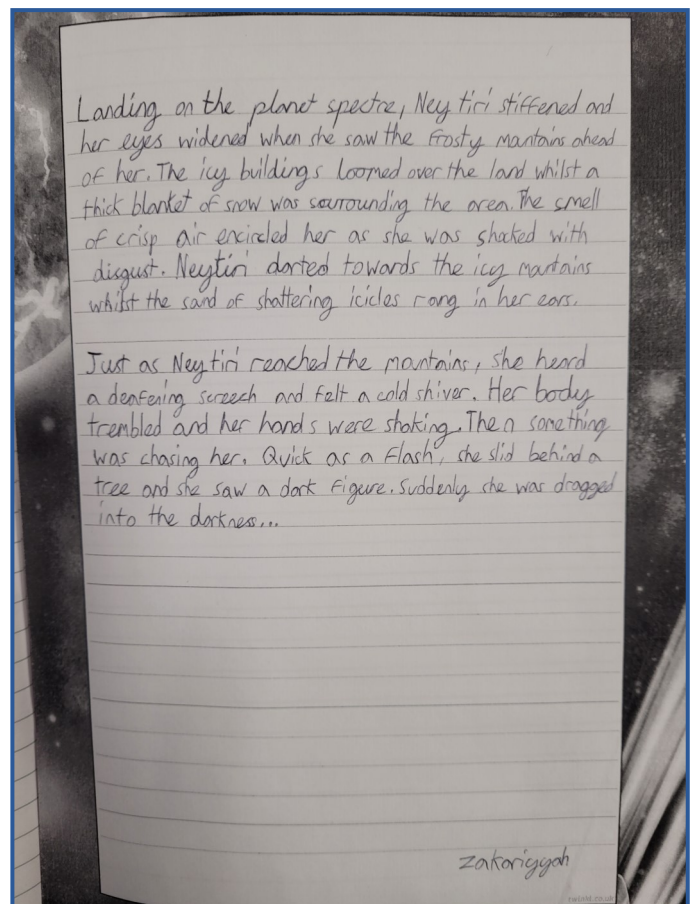 Landing on the planet spectre, Neytiri stiffened and
her eyes widened when she saw the frosty mantains ahead
of her. The icy buildings loomed over the land whilst a
thick blanket of snow was sourrounding the area. The smell
of crisp air encircled her as she was shocked with
disgust. Neytiri darted towards the icy mantains
whilst the sand of shattering icicles rang in her ears.

Just as Neytiri reached the montains, she heard
a deafening screech and felt a cold shiver. Her body
trembled and her hands were shaking. Then something
was chasing her. Quick as a flash, she slid behind a
tree and she saw a dark figure. Suddenly she was dragged
into the darkness...
zakariyyah
twinkl.co.uk